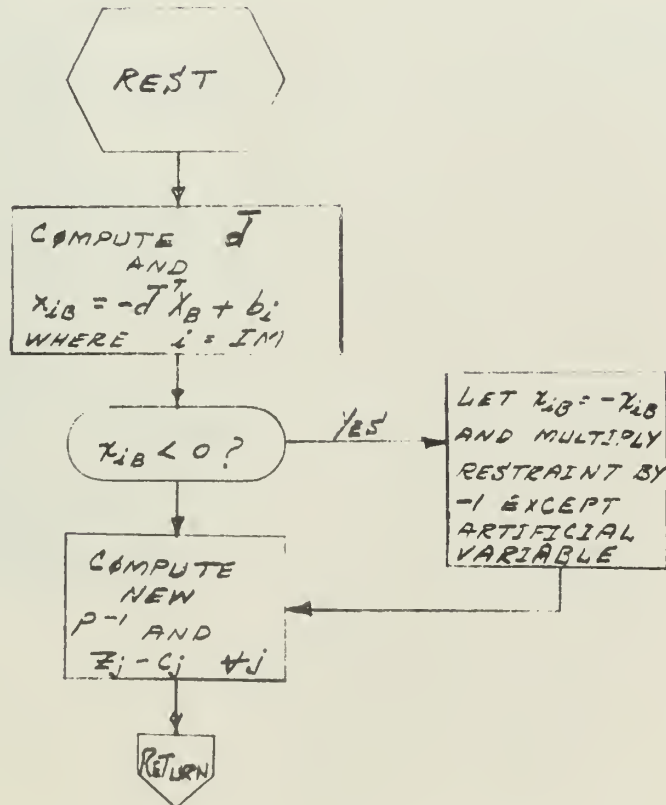 REST
CØMPUTE d̄
AND
x_{iB} = -d̄^T X_B + b_i
WHERE i = IM
x_{iB} < 0?
YES
LET x_{iB} = -x_{iB}
AND MULTIPLY
RESTRAINT BY
-1 EXCEPT
ARTIFICIAL
VARIABLE
CØMPUTE
NEW
P^{-1} AND
Z_j - C_j ∀j
RETURN